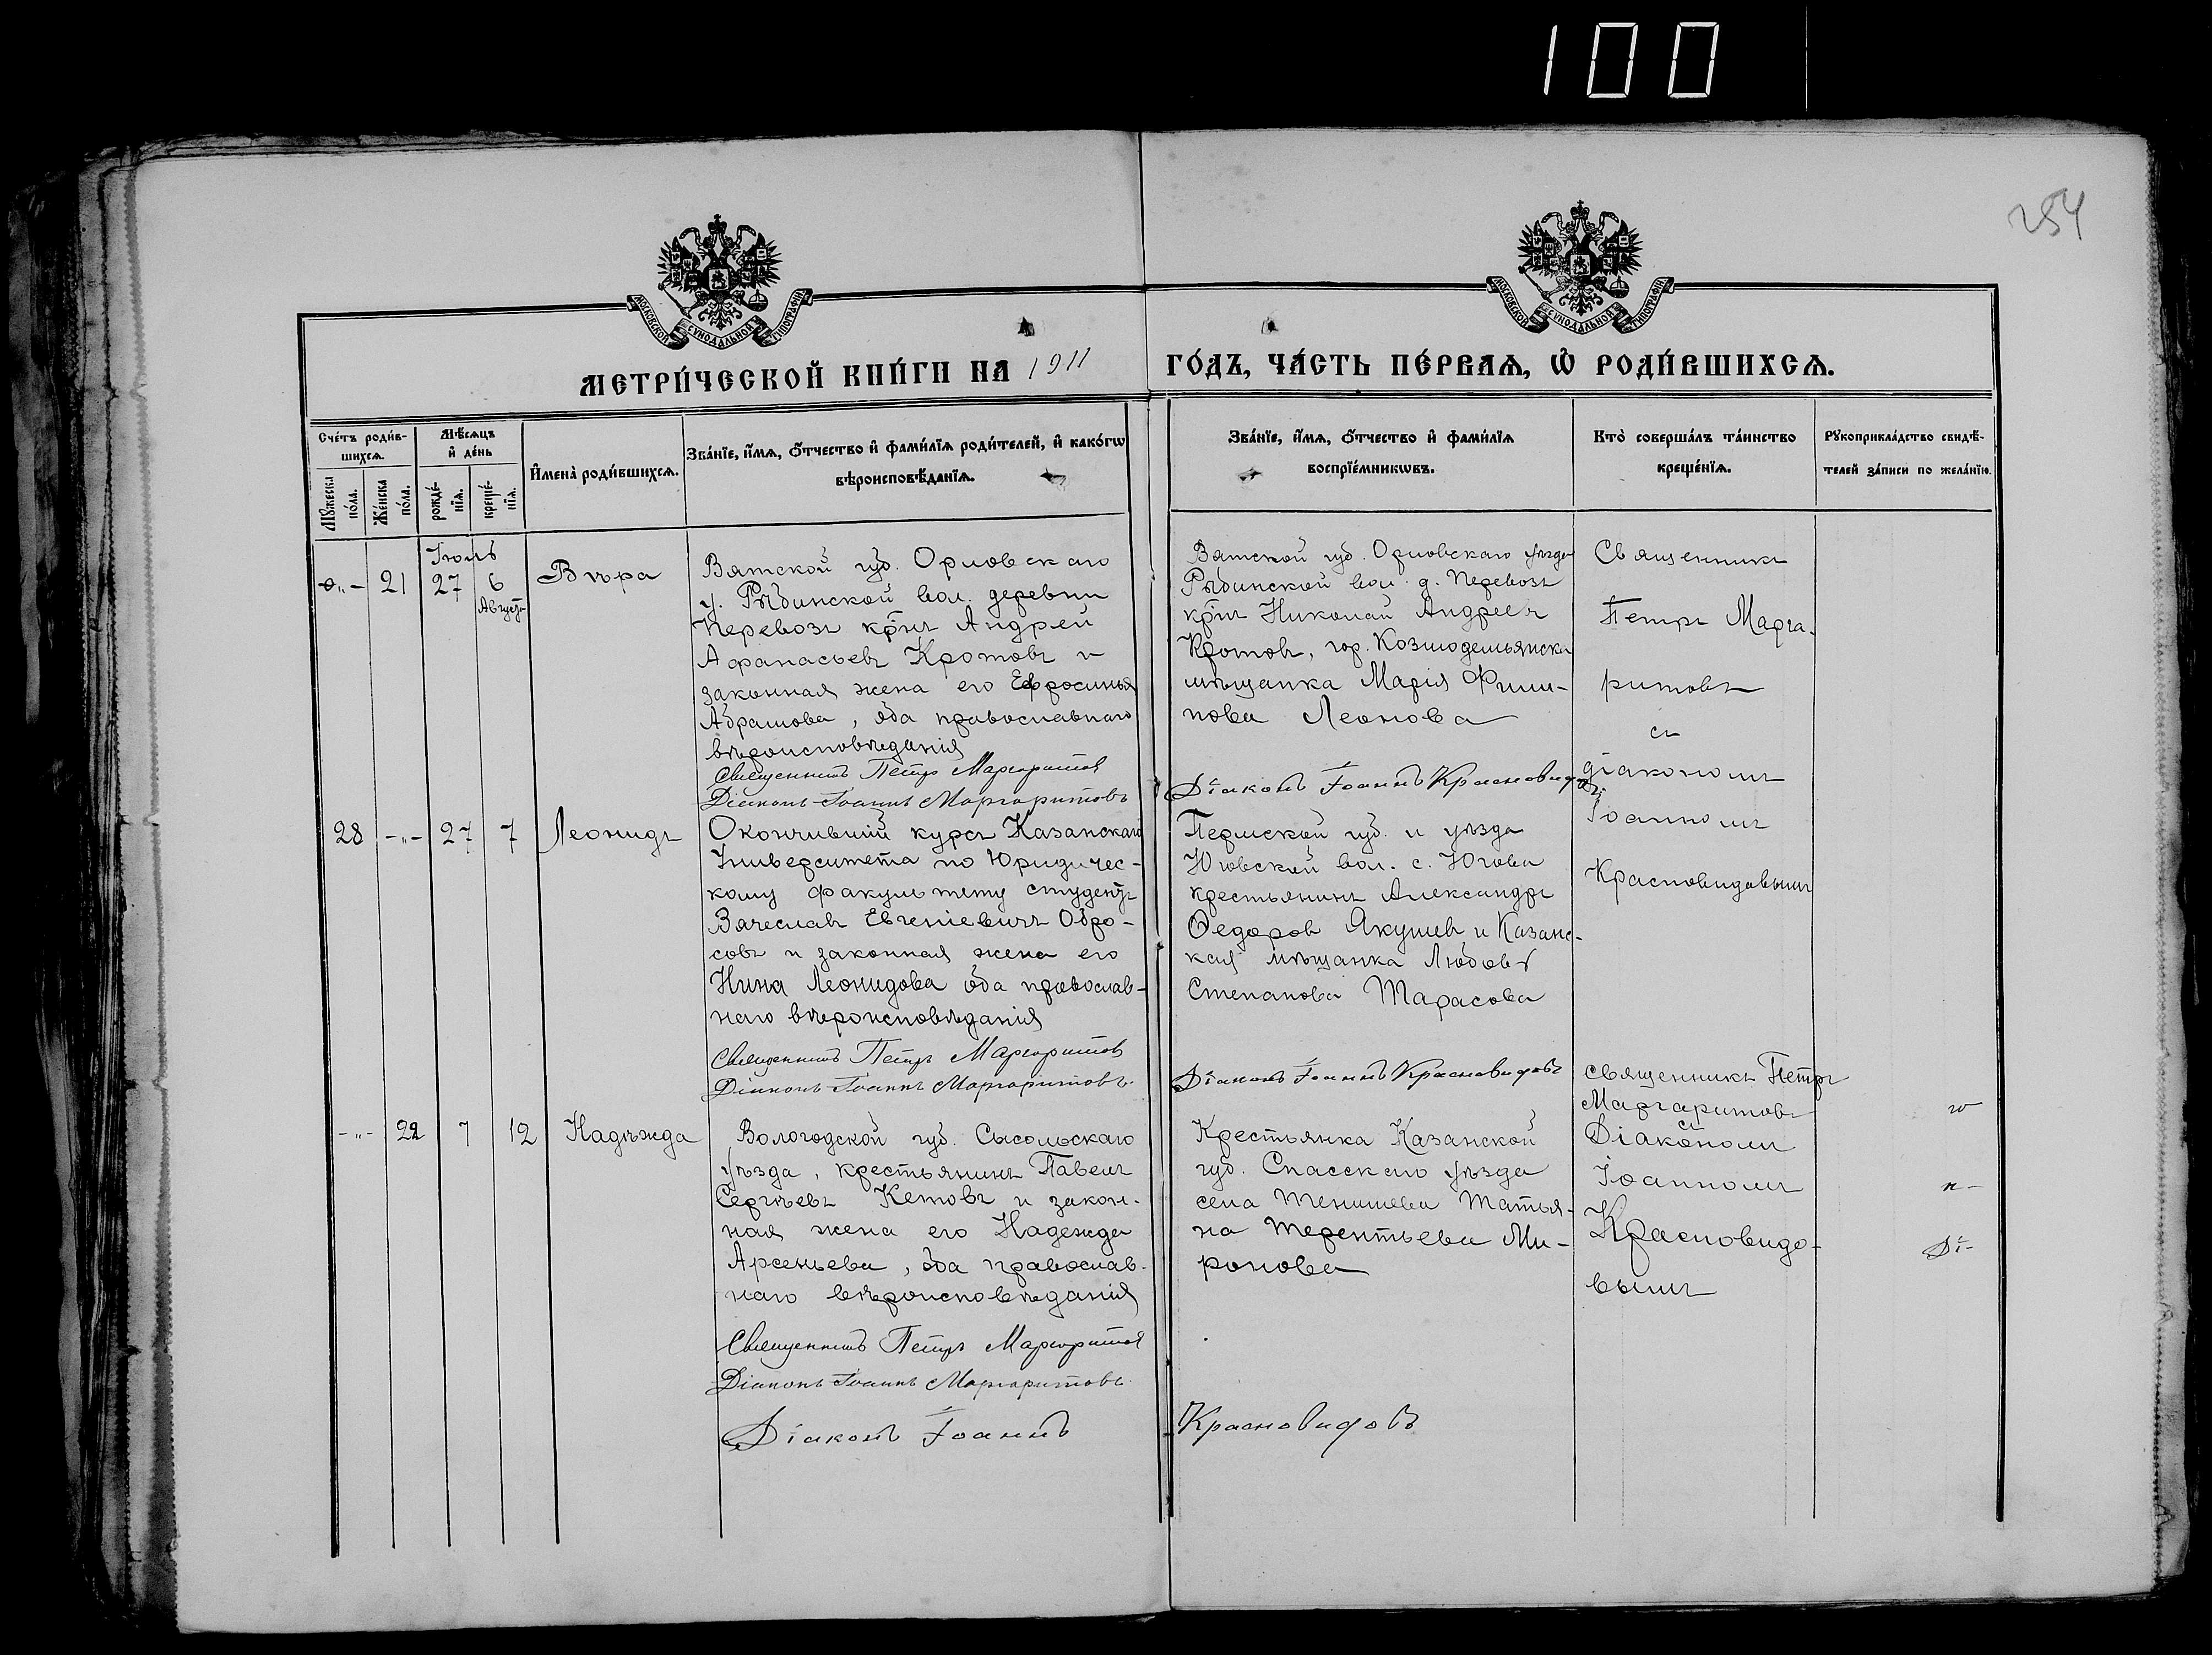 100
254
МОСКОВСКОЙ СУНОДАЛЬНОЙ ТИПОГРАФІИ
МОСКОВСКОЙ СУНОДАЛЬНОЙ ТИПОГРАФІИ
МЕТРИ́ЧЕСКОЙ КНИ́ГИ НА 1911
ГО́ДЪ, ЧА́СТЬ ПЕ́РВАѦ, Ѡ҆ РОДИ́ВШИХСѦ.
Сче́тъ роди́в-
шихсѧ.
Мѹ́жеска по́ла.
Же́нска по́ла.
Мѣ́сѧцъ
и҆ де́нь
рожде́-
нїѧ.
креще́-
нїѧ.
И҆мена̀ роди́вшихсѧ.
Зва́нїе, и҆́мѧ, ѻ҆́тчество и҆ фами́лїѧ роди́телей, и҆ како́гѡ
вѣроисповѣ́данїѧ.
Зва́нїе, и҆́мѧ, ѻ҆́тчество и҆ фами́лїѧ
воспрїе́мникѡвъ.
Кто̀ соверша́лъ та́инство
креще́нїѧ.
Рѹкоприкла́дство свидѣ́-
телей за́писи по жела́нїю.
-„- 21
Іюль
27
6
Августъ
Вѣра
Вятской губ. Орловскаго
у. Рѣбинской вол. деревни
Перевозъ кр̃нъ Андрей
Афанасьевъ Кротовъ и
законная жена его Ефросинья
Абрамова, оба православнаго
вѣроисповѣданія
Священникъ Петръ Маргаритовъ
Діаконъ Іоаннъ Маргаритовъ
Вятской губ. Орловскаго уѣзда
Рѣбинской вол. д. Перевозъ
кр̃нъ Николай Андреевъ
Кротовъ, гор. Козмодемьянска
мѣщанка Марія Филип-
пова Леонова
Діаконъ Іоаннъ Красновидовъ.
Священникъ
Петръ Марга-
ритовъ
съ
діакономъ
Іоанномъ
Красновидовымъ
28 -„- 27 7 Леонидъ
Окончившій курсъ Казанскаго
Университета по Юридичес-
кому факультету студентъ
Вячеславъ Евгеніевичъ Обро-
совъ и законная жена его
Нина Леонидова оба православ-
наго вѣроисповѣданія
Священникъ Петръ Маргаритовъ
Діаконъ Іоаннъ Маргаритовъ.
Пермской губ. и уѣзда
Юговской вол. с. Югова
крестьянинъ Александръ
Ѳедоровъ Якушевъ и Казанс-
кая мѣщанка Любовь
Степанова Тарасова
Діаконъ Іоаннъ Красновидовъ
-„- 22 7 12 Надѣжда
Вологодской губ. Сысольскаго
уѣзда, крестьянинъ Павелъ
Сергѣевъ Кетовъ и закон-
ная жена его Надежда
Арсеньева, оба православ-
наго вѣроисповѣданія
Священникъ Петръ Маргаритовъ
Діаконъ Іоаннъ Маргаритовъ.
Діаконъ Іоаннъ
Крестьянка Казанской
губ. Спасскаго уѣзда
села Тенишева Татья-
на Терентьева Ми-
ронова
Красновидовъ
Священникъ Петръ
Маргаритовъ
съ
Діакономъ
Іоанномъ
Красновидо-
вымъ